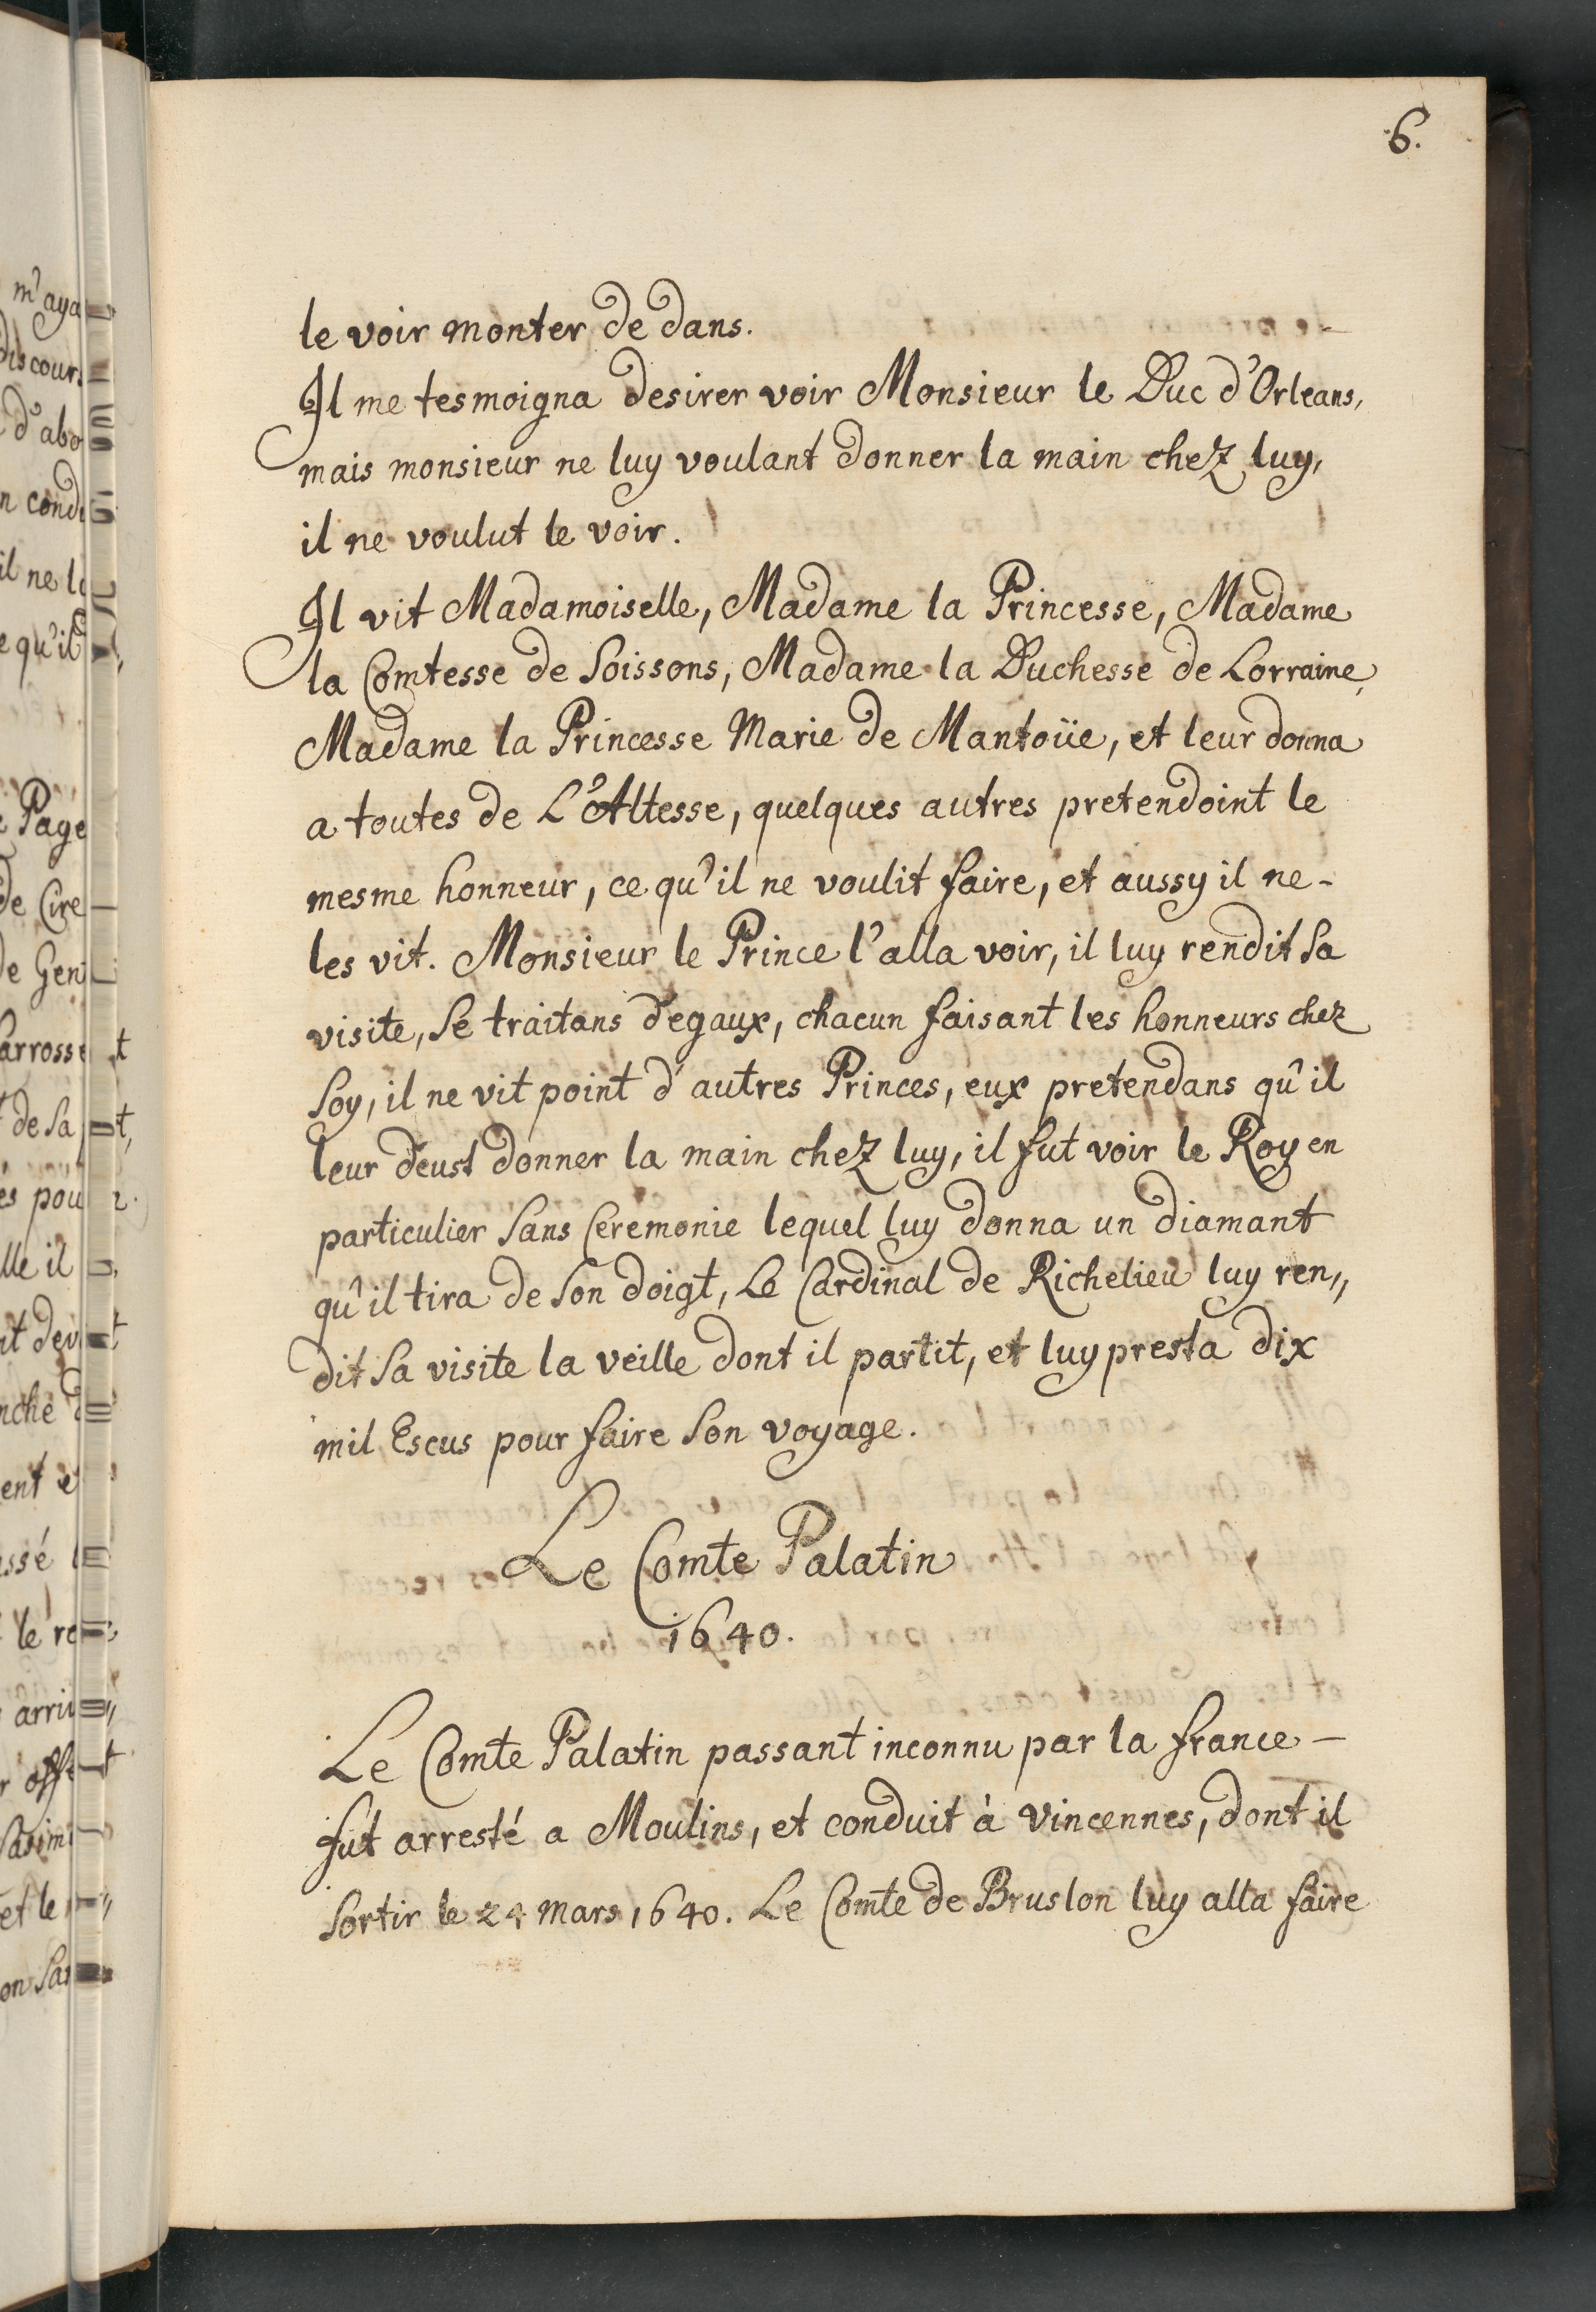 6.
le voir monter de dans.
Il me tesmoigna desirer voir Monsieur le Duc d'Orleans,
mais monsieur ne luy voulant donner la main chez luy,
il ne voulut le voir.
Il vit Madamoiselle, Madame la Princesse, Madame
la Comtesse de Soissons, Madame la Duchesse de Lorraine,
Madame la Princesse Marie de Mantoüe, et leur donna
a toutes de L'Altesse, quelques autres pretendoint le
mesme honneur, ce qu'il ne voulit faire, et aussy il ne-
les vit. Monsieur le Prince l'alla voir, il luy rendit sa
visite, se traitans d'egaux, chacun faisant les honneurs chez
soy, il ne vit point d'autres Princes, eux pretendans qu'il
leur deust donner la main chez luy, il fut voir le Roy en
particulier sans Ceremonie lequel luy donna un diamant
qu'il tira de son doigt, Le Cardinal de Richelieu luy ren,,
dit sa visite la veille dont il partit, et luy presta dix
mil Escus pour faire son voyage.
Le Comte Palatin
1640.
Le Comte Palatin passant inconnu par la france —
fut arresté a Moulins, et conduit à vincennes, dont il
sortir le 24 mars 1640. Le Comte de Bruslon luy alla faire